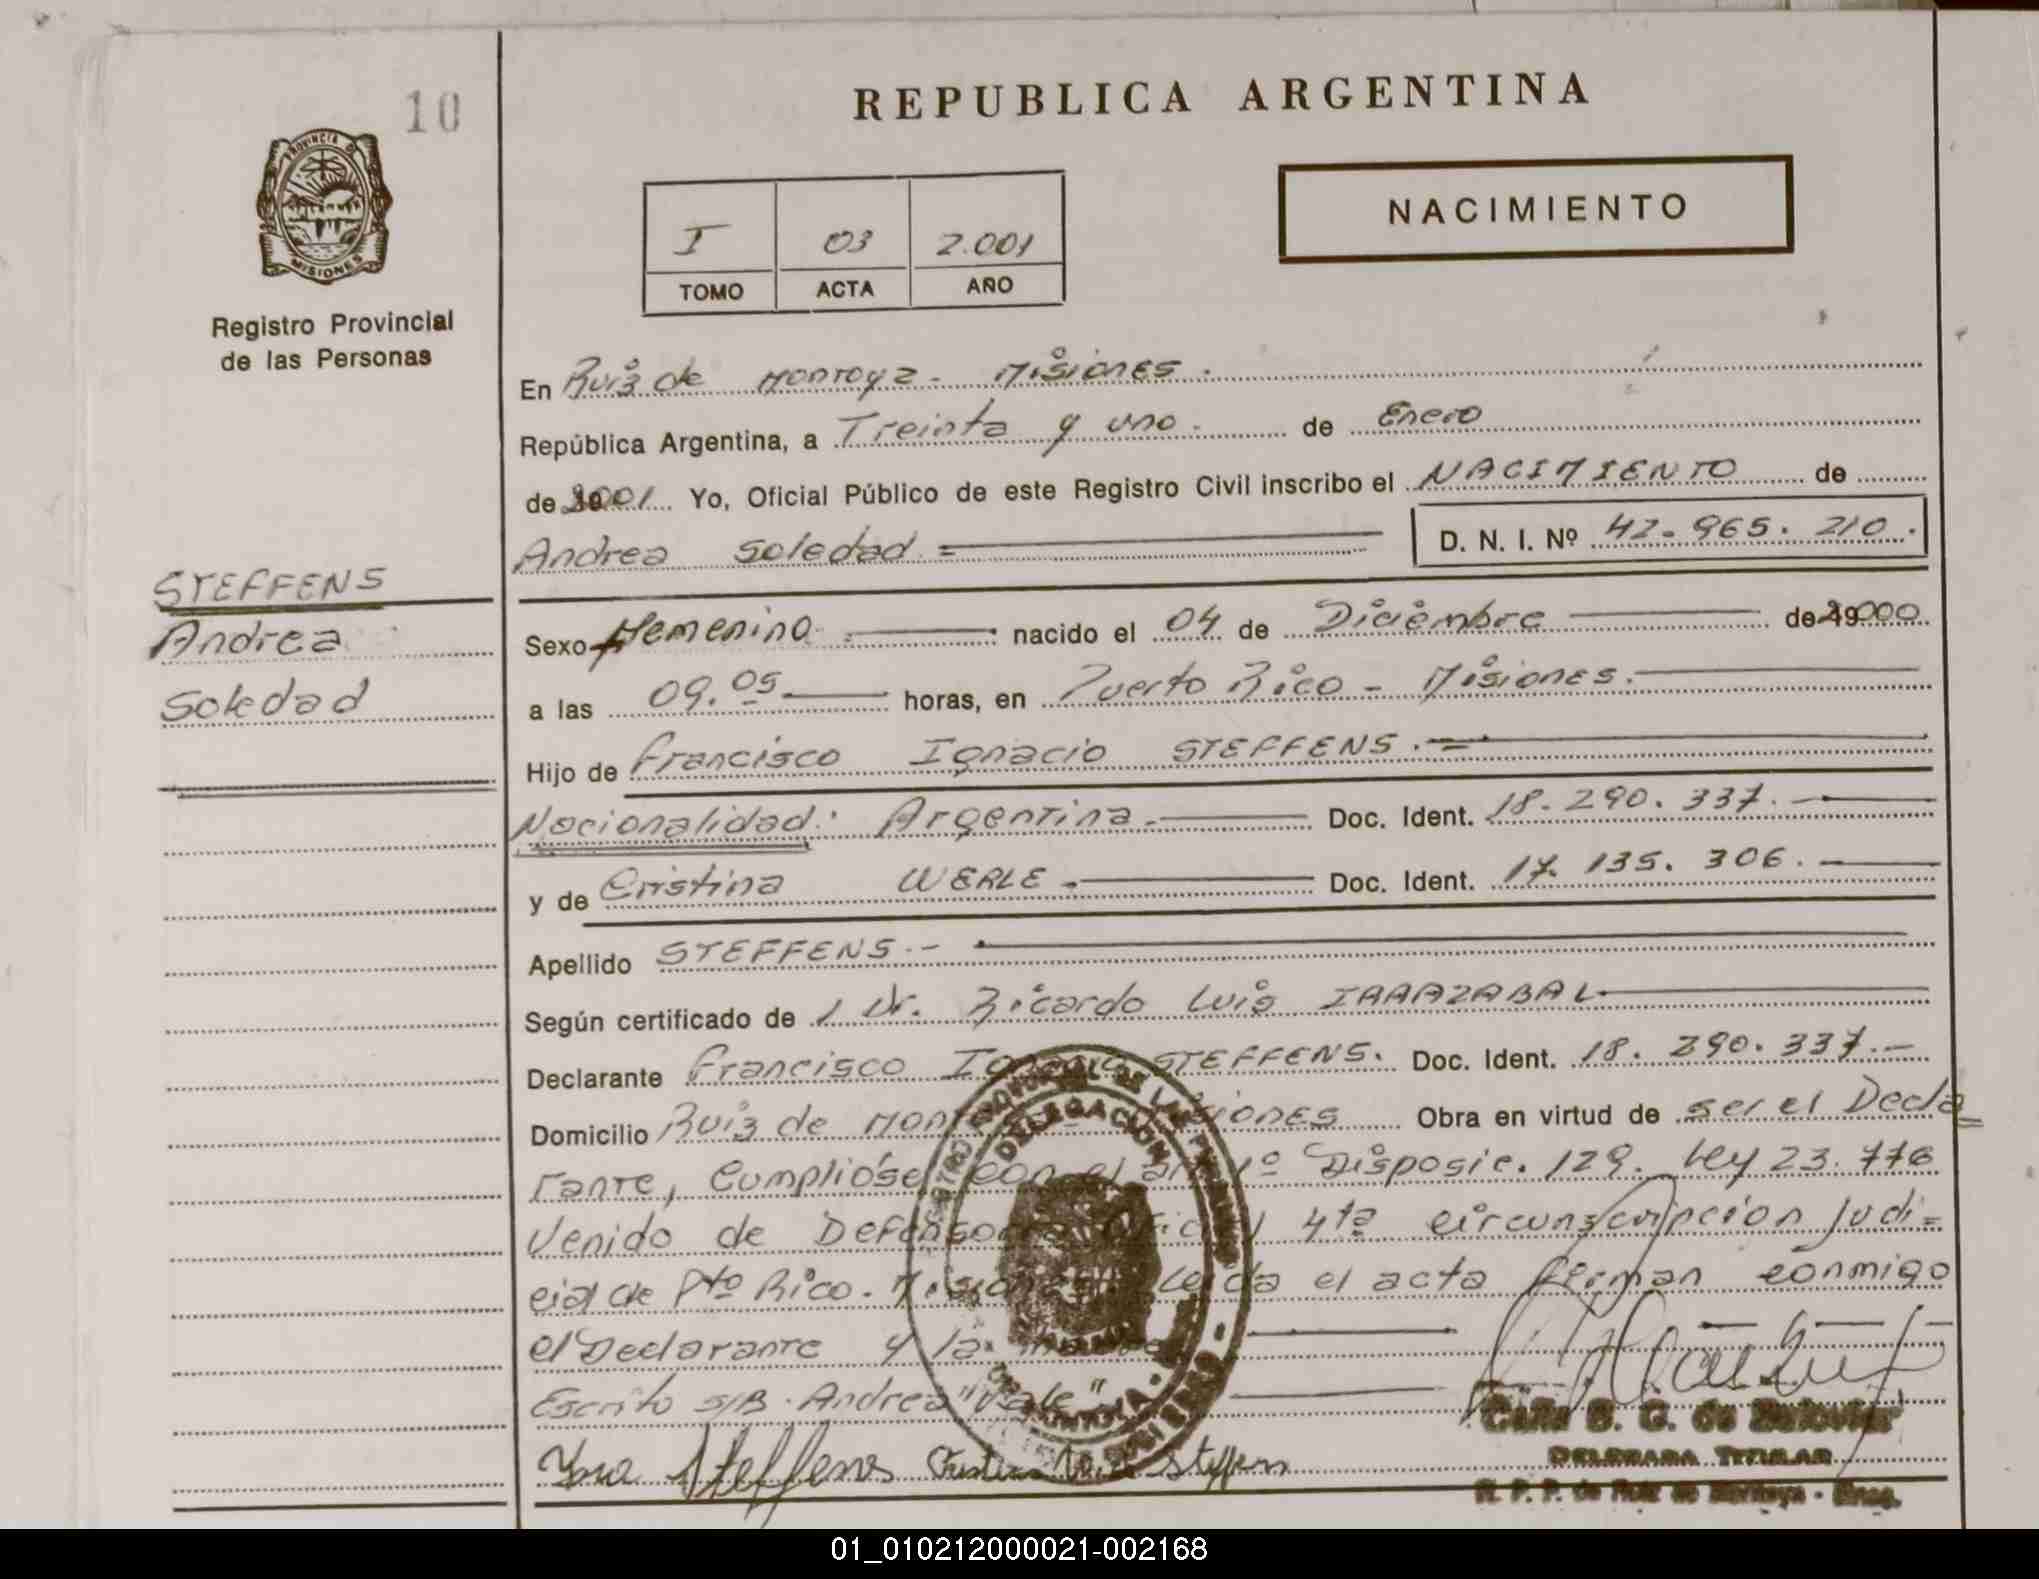 10
PROVINCIA DE
MISIONES
Registro Provincial
de las Personas
STEFFENS
Andrea
Soledad
REPUBLICA ARGENTINA
I 03 2.001
TOMO ACTA AÑO
NACIMIENTO
En Ruiz de Montoya - Misiones.
República Argentina, a Treinta y uno. de Enero
de 2001 Yo, Oficial Público de este Registro Civil inscribo el NACIMIENTO de
Andrea Soledad = D. N. I. Nº 42.965.210.
Sexo Femenino nacido el 04 de Diciembre de 2000
a las 09.05 horas, en Puerto Rico - Misiones.
Hijo de Francisco Ignacio STEFFENS.
Nacionalidad: Argentina. Doc. Ident. 18.290.337.
y de Cristina WERLE. Doc. Ident. 17.135.306.
Apellido STEFFENS.-
Según certificado de 1 Dr. Ricardo Luis IRRAZABAL
Declarante Francisco Ignacio STEFFENS. Doc. Ident. 18.290.337.-
Domicilio Ruiz de Misiones Obra en virtud de ser el Decla
rante, Cumplióse con el art 1º Disposic. 129. Ley 23.776
Venido de Defensoria Oficial 4ta circunscripción Judi=
cial de Pto Rico. Misiones. Leida el acta firman conmigo
el Declarante y la
Escrito S/B. Andrea "Vale"
Steffens Steffens
DELEGADA TITULAR
R. P. P. de Ruiz de Montoya - Mnes.
DELEGACION
01_010212000021-002168